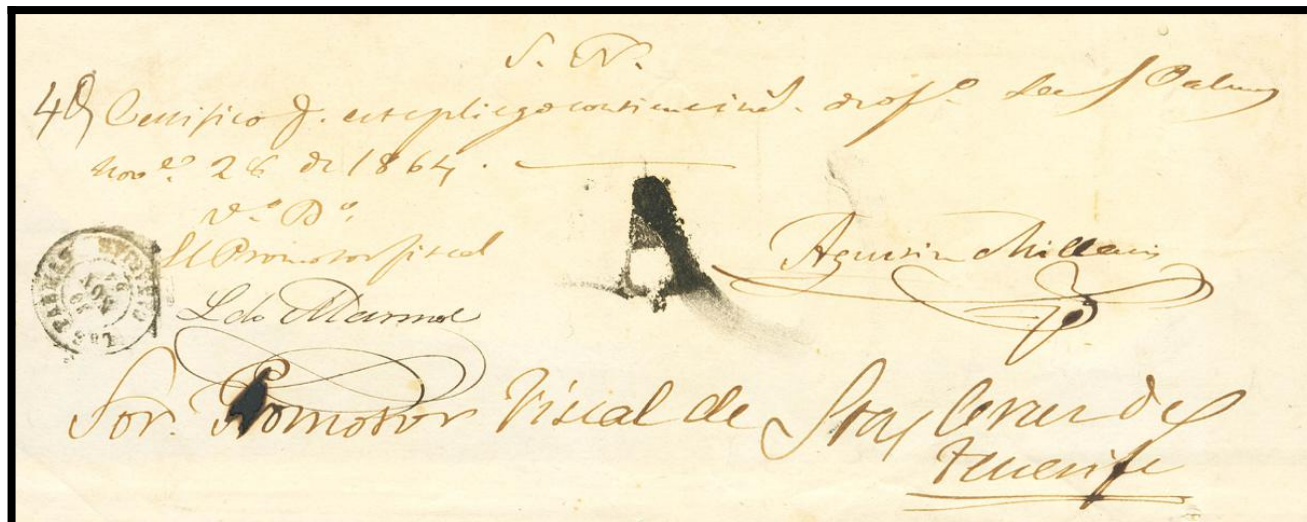 S. N.
Certifico q. este pliego contiene dros. de of.º Las Palmas
Nov.e 26 de 1864.
V.º B.º
El Promotor fiscal
Agustin Millares
Ldo Marmol
A
LAS PALMAS
26 NOV
Sor. Promotor Fiscal de Sta Cruz de
Tenerife